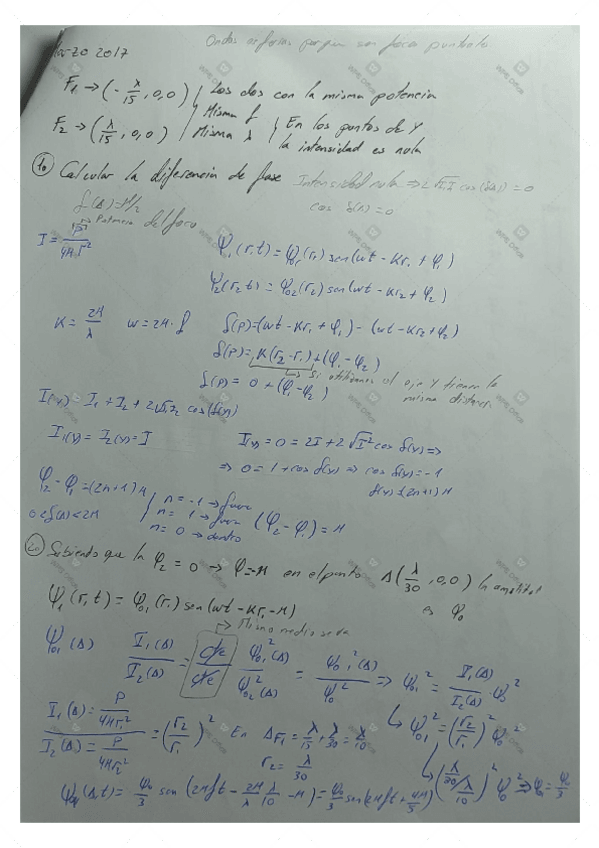 Ondas esféricas porque son focos puntuales
Marzo 2017
F₁ → (-λ/15, 0, 0) } Los dos con la misma potencia
Misma f
F₂ → (λ/15, 0, 0) Misma λ } En los puntos de Y
la intensidad es nula
1º Calcular la diferencia de fase Intensidad nula ⇒ 2√I₁I cos(δ(A)) = 0
cos δ(A) = 0
δ(A) = π/2
→ Potencia del foco
I = P/4πr²
Ψ₁(r₁t) = Ψ₀₁(r₁) sen(wt - Kr₁ + φ₁)
Ψ₂(r₂t) = Ψ₀₂(r₂) sen(wt - Kr₂ + φ₂)
K = 2π/λ w = 2π·f δ(P) = (wt - Kr₁ + φ₁) - (wt - Kr₂ + φ₂)
δ(P) = K(r₂ - r₁) + (φ₁ - φ₂)
↳ Si utilizamos el eje Y tienen la
misma distancia
δ(P) = 0 + (φ₁ - φ₂)
I(y) = I₁ + I₂ + 2√I₁I₂ cos(δ(y))
I₁(y) = I₂(y) = I I(y) = 0 = 2I + 2√I² cos δ(y) ⇒
⇒ 0 = 1 + cos δ(y) ⇒ cos δ(y) = -1
δ(y) = (2n+1)π
φ₂ - φ₁ = (2n+1)π
0 < δ(A) < 2π
n = -1 → fuera
n = 1 → fuera
n = 0 → dentro (φ₂ - φ₁) = π
2º Sabiendo que la φ₂ = 0 → φ = -π en el punto A(λ/30, 0, 0) la amplitud
es Ψ₀
Ψ₁(r₁t) = Ψ₀₁(r₁) sen(wt - Kr₁ - π)
→ Mismo medio se va
Ψ₀₁(A) I₁(A)/I₂(A) = Ψ₀₁²(A)/Ψ₀₂²(A) = Ψ₀₁²(A)/Ψ₀² ⇒ Ψ₀₁² = I₁(A)/I₂(A) Ψ₀²
I₁(A) = P/4πr₁²
I₂(A) = P/4πr₂² = (r₂/r₁)² En A_F₁ = λ/15 + λ/30 = λ/10 ↳ Ψ₀₁² = (r₂/r₁)² Ψ₀²
r₂ = λ/30
↳ (λ/30 / λ/10)² Ψ₀² ⇒ Ψ₀₁ = Ψ₀/3
Ψ₀₁(A,t) = Ψ₀/3 sen(2πft - 2π/λ λ/10 - π) = Ψ₀/3 sen(2πft + 4π/5)